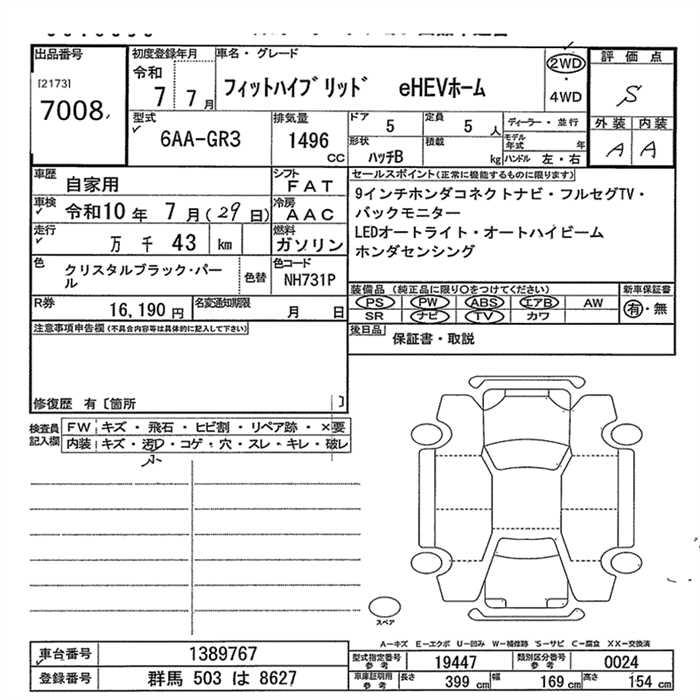 出品番号
[2173]
7008
初度登録年月
令和
7 7月
車名・グレード
フィットハイブリッド eHEVホーム
2WD
・
4WD
評価点
S
外装 内装
A A
型式
6AA-GR3
排気量
1496
CC
ドア
5
定員
5 人
形状
ハッチB
積載
kg
ディーラー・並行
モデル年式 年
ハンドル 左・右
車歴
自家用
シフト
FAT
車検
令和10年 7月(29日)
冷房
AAC
走行
万 千 43 km
燃料
ガソリン
色
クリスタルブラック・パール
色替
色コード
NH731P
R券
16,190 円
名変通知期限
月 日
セールスポイント(正常に機能するものに限ります)
9インチホンダコネクトナビ・フルセグTV・
バックモニター
LEDオートライト・オートハイビーム
ホンダセンシング
装備品(純正品に限り○をつけてください)
PS PW ABS エアB AW
SR ナビ TV カワ
新車保証書
有・無
後日品
保証書・取説
注意事項申告欄(不具合内容等は具体的に記入して下さい)
修復歴 有〔箇所 〕
検査員
記入欄
FW キズ・飛石・ヒビ割・リペア跡・×要
内装 キズ・汚れ・コゲ・穴・スレ・キレ・破レ
小
スペア
A-キズ E-エクボ U-凹み W-補修跡 S-サビ C-腐立 XX-交換済
車台番号
1389767
登録番号
群馬 503 は 8627
型式指定番号
参考
19447
類別区分番号
参考
0024
車庫証明用
参考
長さ 399 cm 幅 169 cm 高さ 154 cm